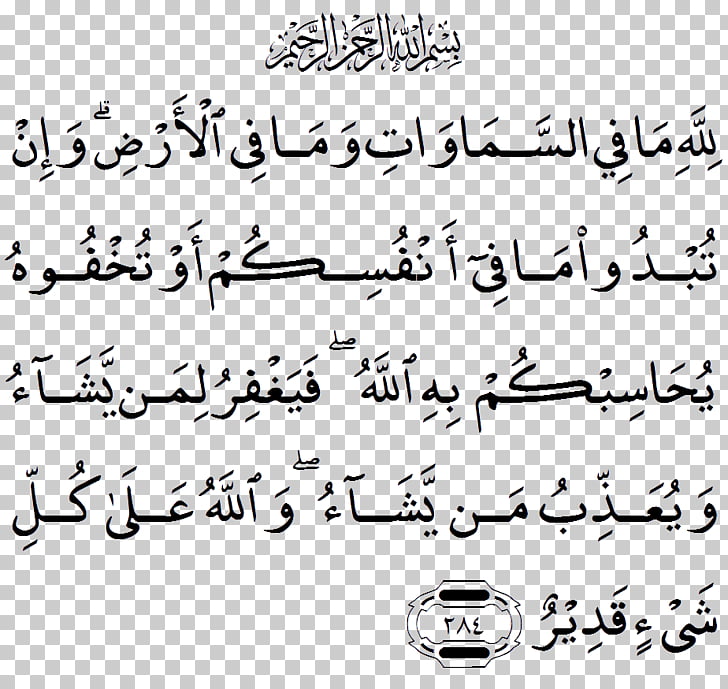 بِسْمِ اللَّهِ الرَّحْمَنِ الرَّحِيمِ
لِلَّهِ مَا فِي السَّمَاوَاتِ وَمَا فِي ٱلْأَرْضِ ۗ وَإِنْ
تُبْدُوا۟ مَا فِىٓ أَنْفُسِكُمْ أَوْ تُخْفُوهُ
يُحَاسِبْكُمْ بِهِ ٱللَّهُ ۖ فَيَغْفِرُ لِمَن يَّشَآءُ
وَيُعَذِّبُ مَن يَّشَآءُ ۖ وَٱللَّهُ عَلَىٰ كُلِّ
شَىْءٍ قَدِيْرٌ ٢٨٤